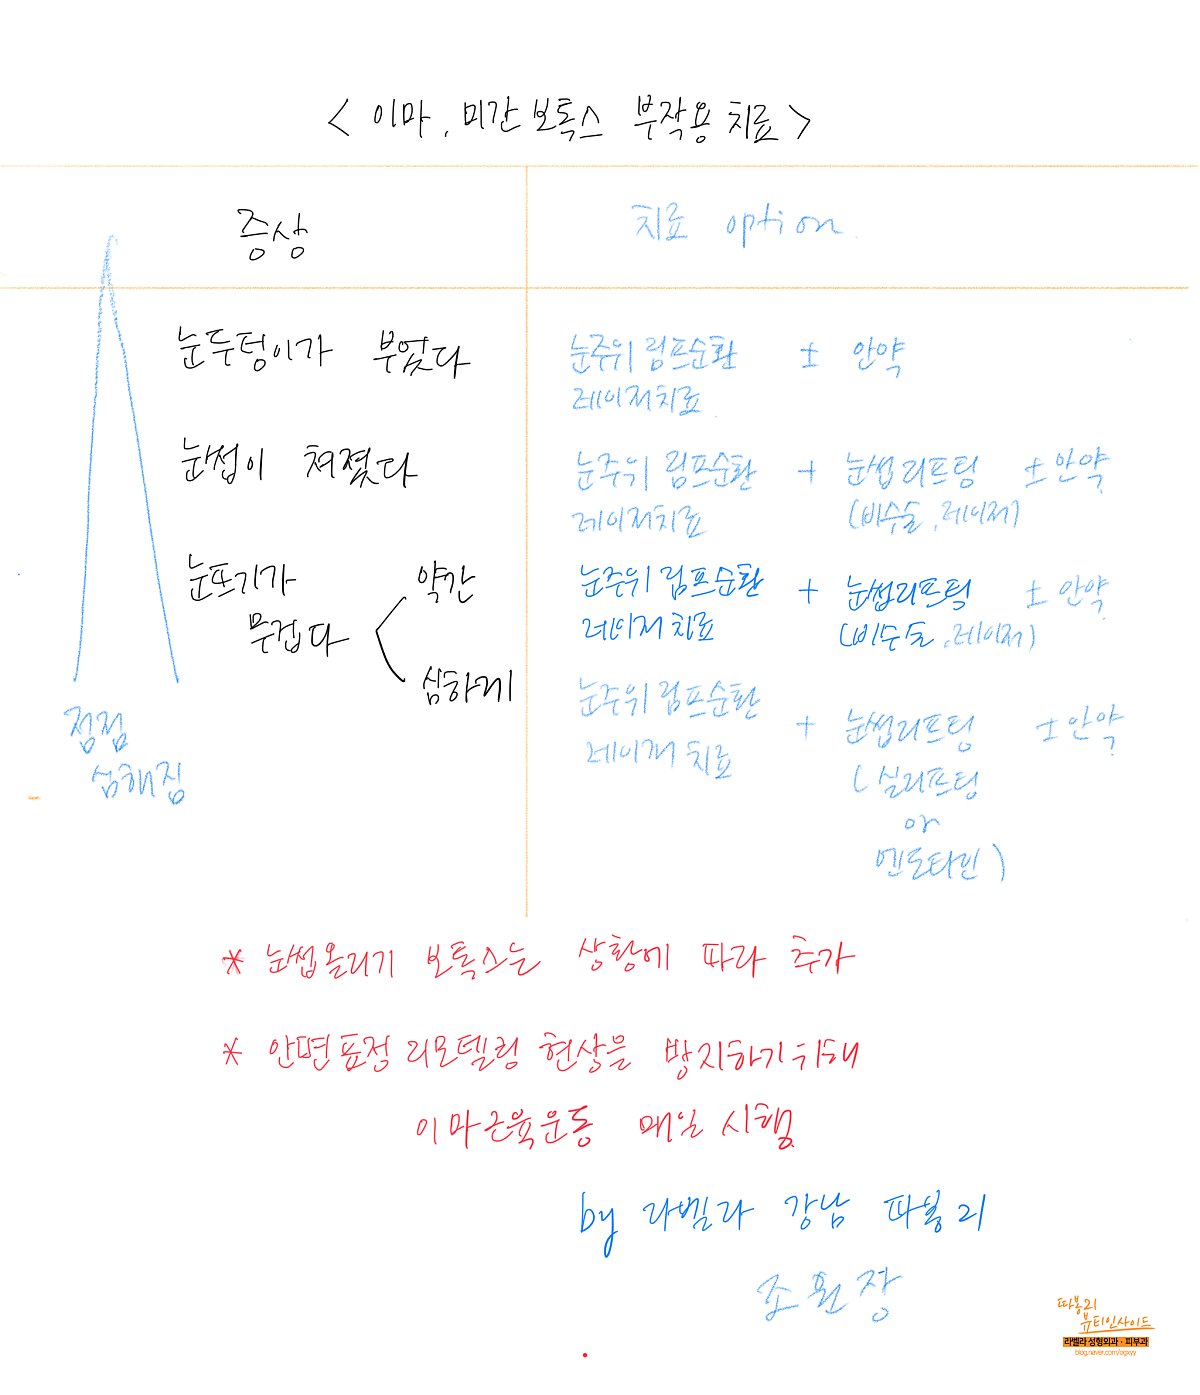 < 이마, 미간 보톡스 부작용 치료 >
증상
치료 option
눈두텅이가 부었다
눈주위 림프순환 ± 안약
레이저치료
눈썹이 쳐졌다
눈주위 림프순환 + 눈썹리프팅 ± 안약
레이저치료 (비수술, 레이저)
눈뜨기가 약간
무겁다
심하게
눈주위 림프순환 + 눈썹리프팅 ± 안약
레이저 치료 (비수술, 레이저)
눈주위 림프순환
레이저 치료 + 눈썹리프팅 ± 안약
(실리프팅
or
엔도타인)
점점
심해짐
* 눈썹올리기 보톡스는 상황에 따라 추가
* 안면표정 리모델링 현상을 방지하기위해
이마근육운동 매일 시행
by 라벨라 강남 따봉리
조원장
따봉리
뷰티인사이드
라벨라 성형외과 · 피부과
blog.naver.com/ogxyy